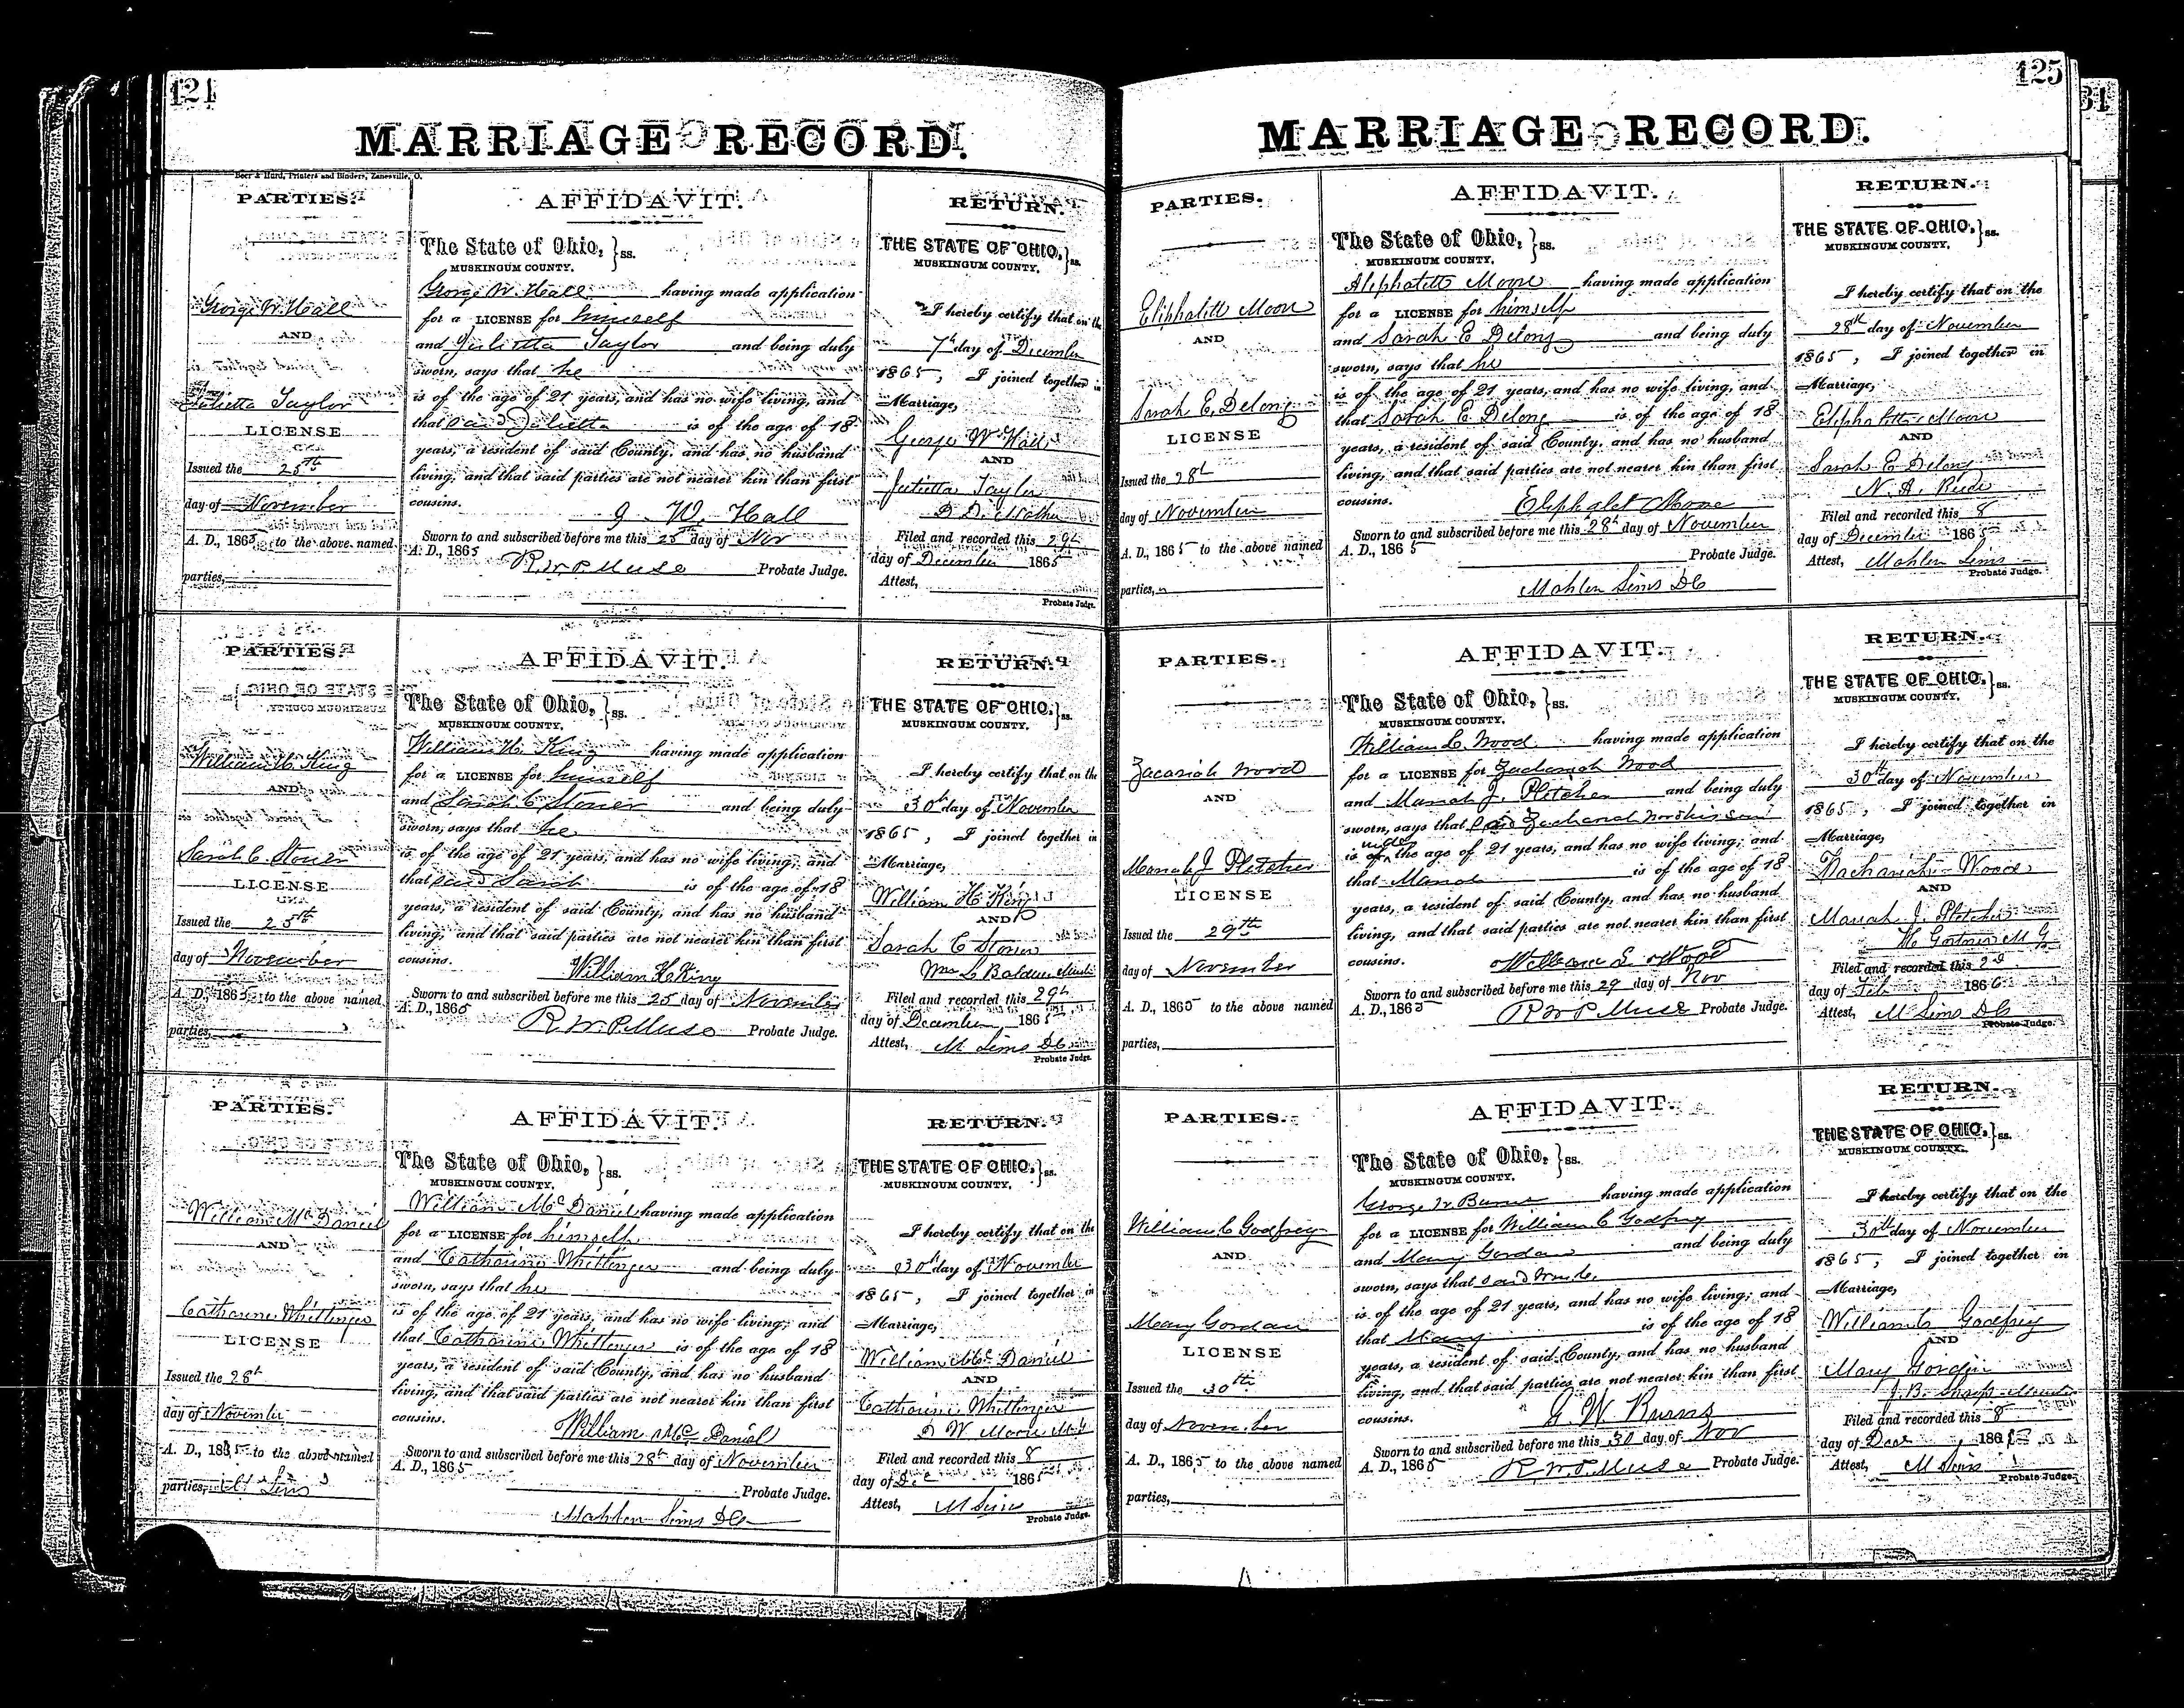 124
MARRIAGE RECORD.
Beer & Hurd, Printers and Binders, Zanesville, O.
PARTIES.
George W. Hall
AND
Julietta Taylor
LICENSE
Issued the 25th
day of November
A. D., 1865 to the above named
parties,
AFFIDAVIT.
The State of Ohio, } ss.
MUSKINGUM COUNTY.
George W. Hall having made application
for a LICENSE for himself
and Julietta Taylor and being duly
sworn, says that he
is of the age of 21 years, and has no wife living, and
that said Julietta is of the age of 18
years, a resident of said County, and has no husband
living, and that said parties are not nearer kin than first
cousins.
G. W. Hall
Sworn to and subscribed before me this 25th day of Nov
A. D., 1865
R. W. P. Muse Probate Judge.
RETURN.
THE STATE OF OHIO, } ss.
MUSKINGUM COUNTY,
I hereby certify that on the
7th day of December
1865, I joined together in
Marriage,
George W Hall
AND
Julietta Taylor
D. D. Mather
Filed and recorded this 29th
day of December 1865
Attest,
Probate Judge.
PARTIES.
William H. King
AND
Sarah C. Stoner
LICENSE
Issued the 25th
day of November
A. D., 1865 to the above named
parties,
AFFIDAVIT.
The State of Ohio, } ss.
MUSKINGUM COUNTY.
William H. King having made application
for a LICENSE for himself
and Sarah C Stoner and being duly
sworn, says that he
is of the age of 21 years, and has no wife living, and
that said Sarah is of the age of 18
years, a resident of said County, and has no husband
living, and that said parties are not nearer kin than first
cousins.
William H. King
Sworn to and subscribed before me this 25 day of November
A. D., 1865
R. W. P. Muse Probate Judge.
RETURN.
THE STATE OF OHIO, } ss.
MUSKINGUM COUNTY,
I hereby certify that on the
30th day of November
1865, I joined together in
Marriage,
William H King
AND
Sarah C Stoner
Baldwin
Filed and recorded this 29th
day of December 1865
Attest, M Sims DC
Probate Judge.
PARTIES.
William McDaniel
AND
Catharine Whittinger
LICENSE
Issued the 28th
day of November
A. D., 1865 to the above named
parties, M Sims
AFFIDAVIT.
The State of Ohio, } ss.
MUSKINGUM COUNTY.
William McDaniel having made application
for a LICENSE for himself
and Catharine Whittinger and being duly
sworn, says that he
is of the age of 21 years, and has no wife living, and
that Catharine Whittinger is of the age of 18
years, a resident of said County, and has no husband
living, and that said parties are not nearer kin than first
cousins.
William McDaniel
Sworn to and subscribed before me this 28th day of November
A. D., 1865
Probate Judge.
Mahlen Sims DC
RETURN.
THE STATE OF OHIO, } ss.
MUSKINGUM COUNTY,
I hereby certify that on the
30th day of November
1865, I joined together in
Marriage,
William McDaniel
AND
Catharine Whittinger
D W Moore M G
Filed and recorded this 8
day of Dec 1865
Attest, M Sims
Probate Judge.
125
MARRIAGE RECORD.
PARTIES.
Eliphalett Moore
AND
Sarah E. Delong
LICENSE
Issued the 28th
day of November
A. D., 1865 to the above named
parties,
AFFIDAVIT.
The State of Ohio, } ss.
MUSKINGUM COUNTY.
Aliphalett Moore having made application
for a LICENSE for himself
and Sarah E Delong and being duly
sworn, says that he
is of the age of 21 years, and has no wife living, and
that Sarah E Delong is of the age of 18
years, a resident of said County, and has no husband
living, and that said parties are not nearer kin than first
cousins.
Eliphalet Moore
Sworn to and subscribed before me this 28th day of November
A. D., 1865
Probate Judge.
Mahlen Sims DC
RETURN.
THE STATE OF OHIO, } ss.
MUSKINGUM COUNTY,
I hereby certify that on the
28th day of November
1865, I joined together in
Marriage,
Eliphalette Moore
AND
Sarah E Delong
N. A.
Filed and recorded this 8
day of December 1865
Attest, Mahlen Sims
Probate Judge.
PARTIES.
Zacariah Wood
AND
Mariah J Pletcher
LICENSE
Issued the 29th
day of November
A. D., 1865 to the above named
parties,
AFFIDAVIT.
The State of Ohio, } ss.
MUSKINGUM COUNTY.
William L. Wood having made application
for a LICENSE for Zachariah Wood
and Mariah J. Pletcher and being duly
sworn, says that said Zachariah Wood his son
is under the age of 21 years, and has no wife living, and
that Mariah is of the age of 18
years, a resident of said County, and has no husband
living, and that said parties are not nearer kin than first
cousins.
William L Wood
Sworn to and subscribed before me this 29 day of Nov
A. D., 1865
R W P Muse Probate Judge.
RETURN.
THE STATE OF OHIO, } ss.
MUSKINGUM COUNTY,
I hereby certify that on the
30th day of November
1865, I joined together in
Marriage,
Zachariah Wood
AND
Mariah J. Pletcher
M G
Filed and recorded this 2d
day of Feb 1866
Attest, M Sims DC
Probate Judge.
PARTIES.
William C Godfrey
AND
Mary Gordan
LICENSE
Issued the 30th
day of November
A. D., 1865 to the above named
parties,
AFFIDAVIT.
The State of Ohio, } ss.
MUSKINGUM COUNTY.
George W. Burns having made application
for a LICENSE for William C Godfrey
and Mary Gordan and being duly
sworn, says that said
is of the age of 21 years, and has no wife living, and
that Mary is of the age of 18
years, a resident of said County, and has no husband
living, and that said parties are not nearer kin than first
cousins.
G. W. Burns
Sworn to and subscribed before me this 30 day of Nov
A. D., 1865
R. W. P. Muse Probate Judge.
RETURN.
THE STATE OF OHIO, } ss.
MUSKINGUM COUNTY.
I hereby certify that on the
30th day of November
1865, I joined together in
Marriage,
William C Godfrey
AND
Mary Gordan
J. B. Sharp
Filed and recorded this 8
day of Dec 1865
Attest, M Sims
Probate Judge.